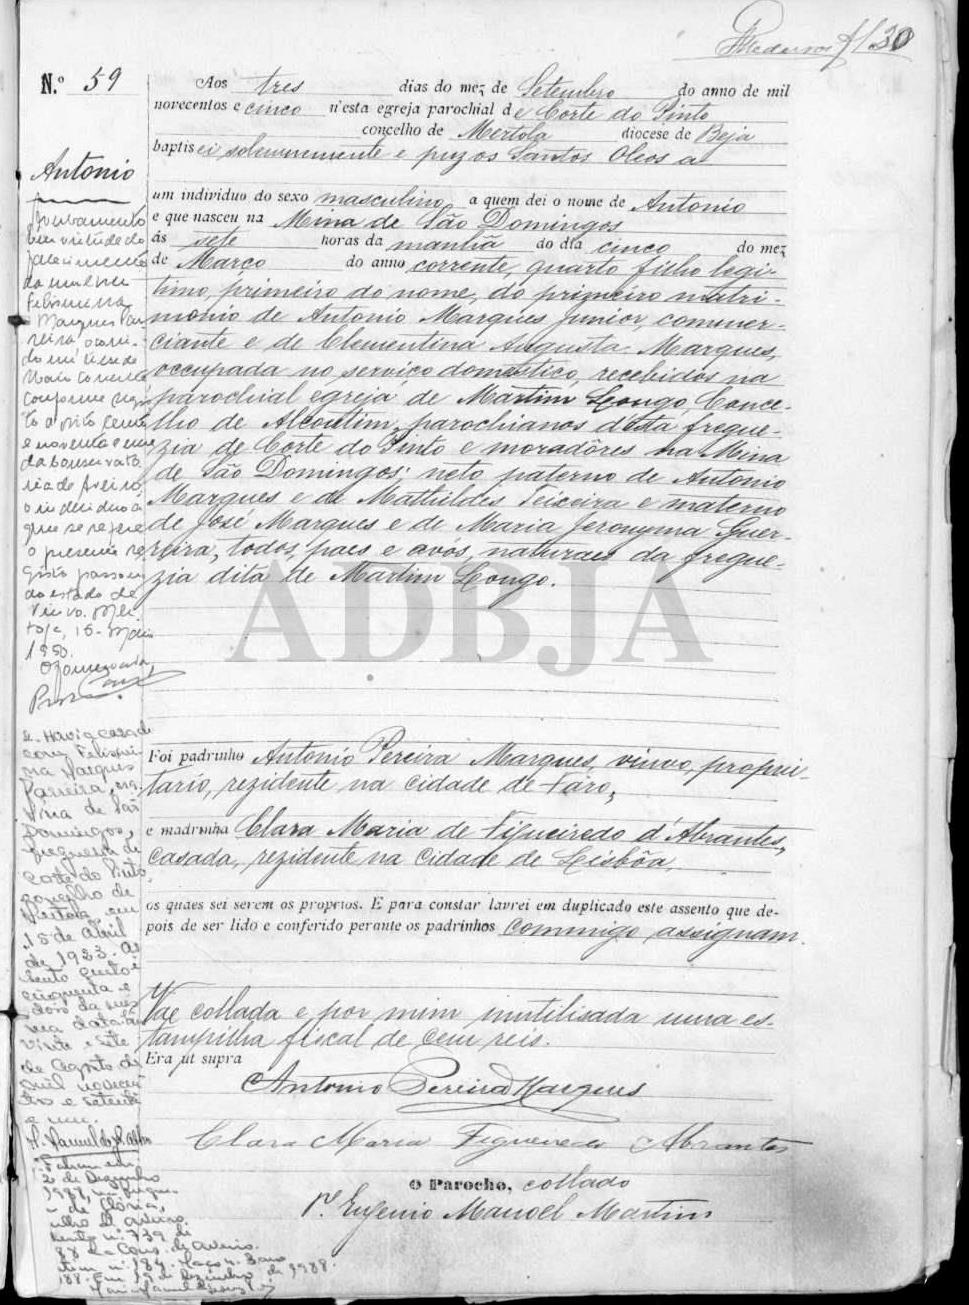 Medeiros f/ 30
N.º 59
Aos tres dias do mez de Setembro do anno de mil
novecentos e cinco n'esta egreja parochial de Corte do Pinto
concelho de Mertola diocese de Beja
baptisei solemnemente e puz os Santos Oleos a
um individuo do sexo masculino a quem dei o nome de Antonio
e que nasceu na Mina de São Domingos
ás sete horas da manhã do dia cinco do mez
de Março do anno corrente, quarto filho legi-
timo, primeiro do nome, do primeiro matri-
monio de Antonio Marques Junior, commer-
ciante e de Clementina Augusta Marques,
occupada no serviço domestico, recebidos na
parochial egreja de Martim Longo, Conce-
lho de Alcoutim, parochianos d'esta fregue-
zia de Corte do Pinto e moradôres na Mina
de São Domingos; neto paterno de Antonio
Marques e de Mathildes Teixeira e materno
de José Marques e de Maria Jeronyma Guer-
reira, todos, paes e avós, naturaes da fregue-
zia dita de Martim Longo.
ADBJA
Foi padrinho Antonio Pereira Marques, viuvo, proprie-
tario, rezidente na cidade de Faro,
e madrinha Clara Maria de Figueiredo d'Abrantes,
casada, rezidente na Cidade de Lisbôa,
os quaes sei serem os proprios. E para constar lavrei em duplicado este assento que de-
pois de ser lido e conferido perante os padrinhos commigo assignam.
Vae collada e por mim inutilisada uma es-
tampilha fiscal de cem reis.
Era ut supra
Antonio Pereira Marques
Clara Maria Figueiredo Abrantes
O Parocho, collado
P.e Eugenio Manoel Martins
Antonio
em virtude do
falecimento
da mulher
Felismina
Marques Par-
reira ocorri-
do
conforme regis-
to
e noventa e um
da conservató-
ria de Aveiro,
o individuo a
que se refere
o presente re-
gisto passou
ao estado de
viuvo. Mér-
tola, 15- Maio
1950.
O
Casou
com Felismi-
na Marques
Parreira, na
Mina de São
Domingos,
freguesia de
Corte do Pinto,
concelho de
Mertola, em
15 de Abril
de 1933. As-
sento cento e
cinquenta e
dois da mes-
ma data.
Vinte e sete
de Agosto de
mil novecen-
tos e setenta
e um.
em
2 de Dezembro
1988, na fregue-
de Glória,
concelho de Aveiro.
Assento n.º 739 de
88 da Cons. de Aveiro.
de Dezembro de 1988.